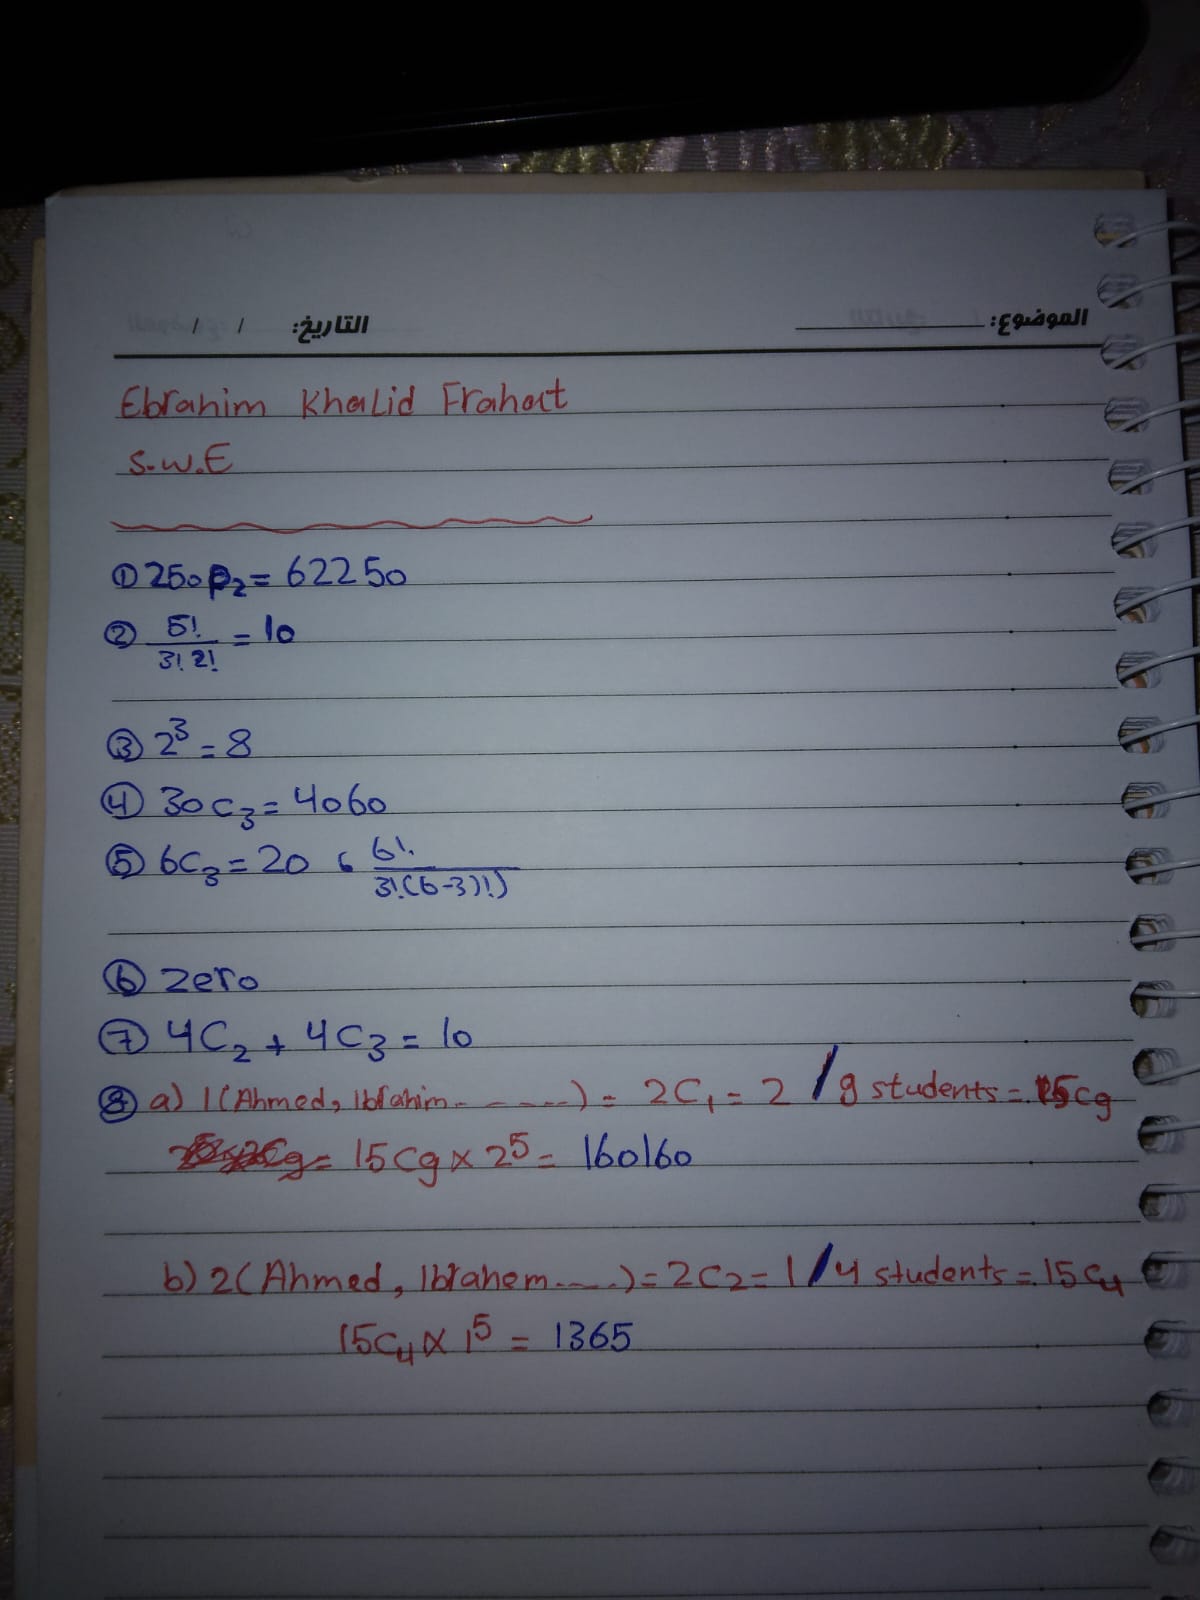 الموضوع: التاريخ: / /
Ebrahim Khalid Frahat
S.W.E
① 250P2 = 62250
② 5!/3! 2! = 10
③ 2^3 = 8
④ 30C3 = 4060
⑤ 6C3 = 20 ، 6!/3!(6-3)!)
⑥ Zero
⑦ 4C2 + 4C3 = 10
⑧ a) 1(Ahmed, Ibrahim------) = 2C1 = 2 / 9 students = 15C9
= 15C9 x 2^5 = 160160
b) 2(Ahmed, Ibrahem----) = 2C2 = 1 / 4 students = 15C4
15C4 x 1^5 = 1365